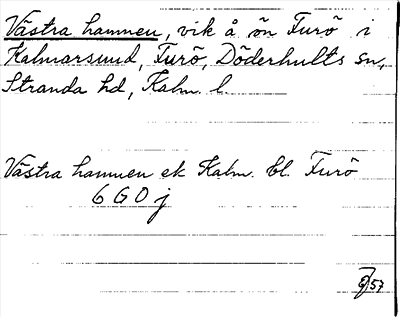 Västra hamnen, vik å ön Furö i
Kalmarsund, Furö, Döderhults sn,
Stranda hd, Kalm. l.
Västra hamnen ek Kalm. bl. Furö
6 G 0 j
57